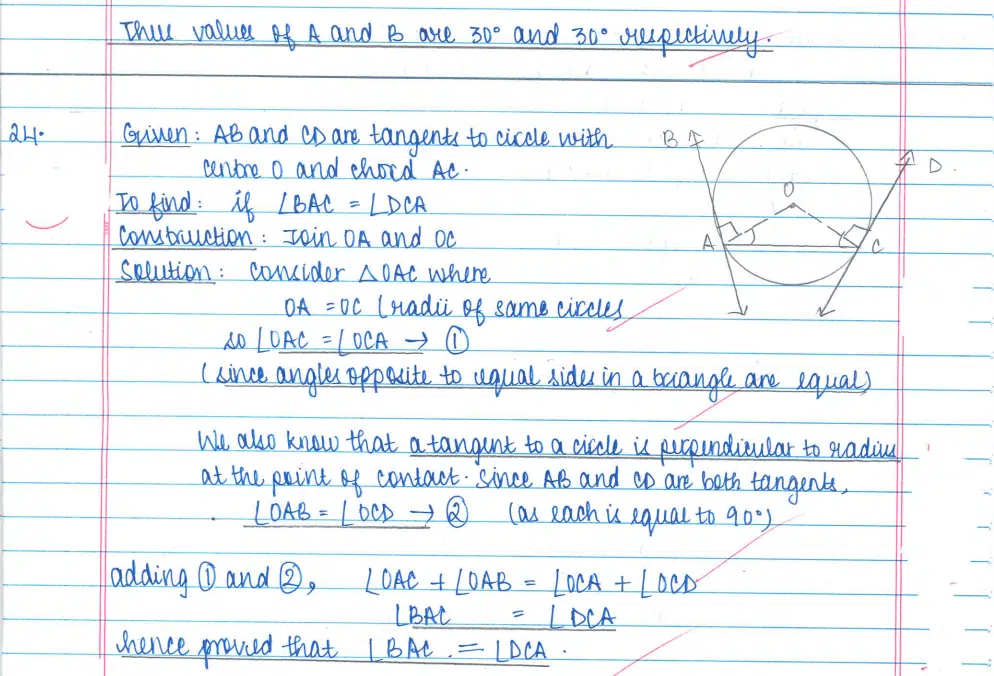 Thus values of A and B are 30° and 30° respectively.
24. Given: AB and CD are tangents to circle with
centre O and chord AC.
To find: if ∠BAC = ∠DCA
Construction: Join OA and OC
Solution: Consider △OAC where
OA = OC (radii of same circles
so ∠OAC = ∠OCA → ①
(since angles opposite to equal sides in a triangle are equal)
We also know that a tangent to a circle is perpendicular to radius
at the point of contact. Since AB and CD are both tangents,
∠OAB = ∠OCD → ② (as each is equal to 90°)
adding ① and ②, ∠OAC + ∠OAB = ∠OCA + ∠OCD
∠BAC = ∠DCA
hence proved that ∠BAC = ∠DCA.
B
D.
O
A
C